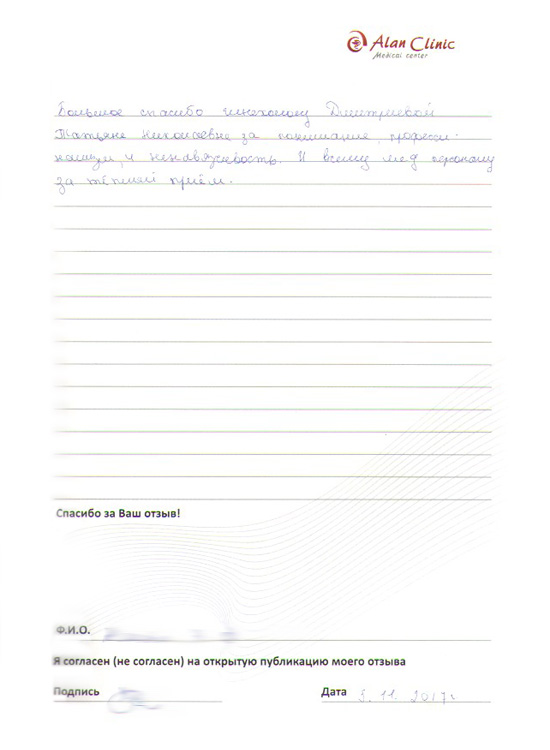 Alan Clinic
Medical center
Большое спасибо гинекологу Дмитриевой
Татьяне Николаевне за понимание, професси-
нализм, и ненавязчивость. И всему мед персоналу
за тёплый приём.
Спасибо за Ваш отзыв!
Ф.И.О.
Я согласен (не согласен) на открытую публикацию моего отзыва
Подпись Дата 5. 11. 2017г.